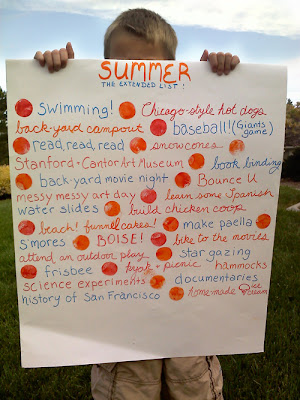 SUMMER
THE EXTENDED LIST:
SWIMMING! Chicago-style hot dogs
back-yard campout baseball! (Giants game)
read, read, read snowcones
Stanford + Cantor Art Museum book binding
back-yard movie night Bounce U
messy messy art day learn some Spanish
water slides build chicken coop
beach! funnelcakes! make paella
s'mores BOISE! bike to the movies
attend an outdoor play star gazing
frisbee + picnic hammocks
science experiments documentaries
history of San Francisco home-made ice cream